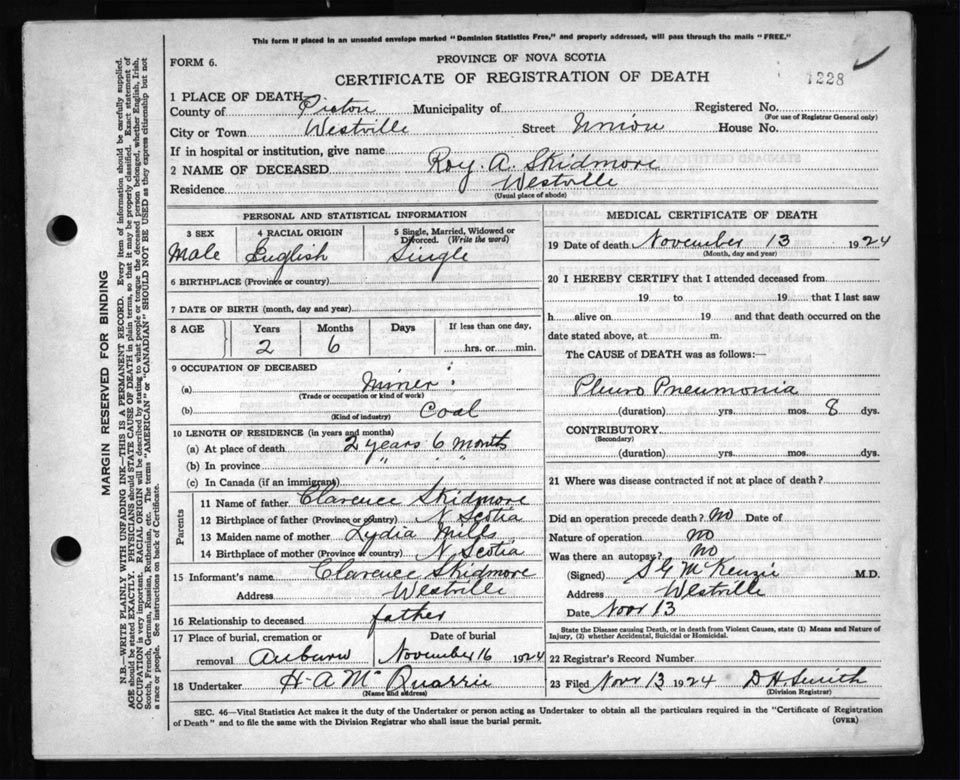 This form if placed in an unsealed envelope marked "Dominion Statistics Free," and properly addressed, will pass through the mails "FREE."
FORM 6.
PROVINCE OF NOVA SCOTIA
CERTIFICATE OF REGISTRATION OF DEATH
1228
1 PLACE OF DEATH
County of Pictou Municipality of Registered No.
(For use of Registrar General only)
City or Town Westville Street Union House No.
If in hospital or institution, give name
2 NAME OF DECEASED Roy. A. Skidmore
Residence Westville
(Usual place of abode)
PERSONAL AND STATISTICAL INFORMATION
3 SEX 4 RACIAL ORIGIN 5 Single, Married, Widowed or Divorced. (Write the word)
Male English Single
6 BIRTHPLACE (Province or country)
7 DATE OF BIRTH (month, day and year)
8 AGE Years Months Days If less than one day,
2 6 hrs. or min.
9 OCCUPATION OF DECEASED
(a) Miner
(Trade or occupation or kind of work)
(b) Coal
(Kind of industry)
10 LENGTH OF RESIDENCE (in years and months)
(a) At place of death 2 years 6 months
(b) In province " " "
(c) In Canada (if an immigrant)
Parents
11 Name of father Clarence Skidmore
12 Birthplace of father (Province or country) N. Scotia
13 Maiden name of mother Lydia Mills
14 Birthplace of mother (Province or country) N. Scotia
15 Informant's name Clarence Skidmore
Address Westville
16 Relationship to deceased father
17 Place of burial, cremation or Date of burial
removal Auburn November 16 1924
18 Undertaker H A McQuarrie
(Name and address)
MEDICAL CERTIFICATE OF DEATH
19 Date of death November 13 1924
(Month, day and year)
20 I HEREBY CERTIFY that I attended deceased from
19 to 19 that I last saw
h alive on 19 and that death occurred on the
date stated above, at m.
The CAUSE of DEATH was as follows:—
Pleuro Pneumonia
(duration) yrs. mos. 8 dys.
CONTRIBUTORY
(Secondary)
(duration) yrs. mos. dys.
21 Where was disease contracted if not at place of death?
Did an operation precede death? No Date of
Nature of operation no
Was there an autopsy? No
(Signed) S G McKenzie M.D.
Address Westville
Date Novr 13
State the Disease causing Death, or in death from Violent Causes, state (1) Means and Nature of
Injury, (2) whether Accidental, Suicidal or Homicidal.
22 Registrar's Record Number
23 Filed Novr 13 1924 D H. Smith
(Division Registrar)
SEC. 46—Vital Statistics Act makes it the duty of the Undertaker or person acting as Undertaker to obtain all the particulars required in the "Certificate of Registration
of Death" and to file the same with the Division Registrar who shall issue the burial permit.
(OVER)
MARGIN RESERVED FOR BINDING
N.B.—WRITE PLAINLY WITH UNFADING INK—THIS IS A PERMANENT RECORD. Every item of information should be carefully supplied.
AGE should be stated EXACTLY. PHYSICIANS should STATE CAUSE OF DEATH in plain terms, so that it may be properly classified. Exact statement of
OCCUPATION is very important. RACIAL ORIGIN will be described by stating to what people or tongue the deceased person belonged, whether English, Irish,
Scotch, French, German, Russian, Ruthenian, etc. The terms "AMERICAN" or "CANADIAN" SHOULD NOT BE USED as they express citizenship but not
a race or people. See instructions on back of Certificate.